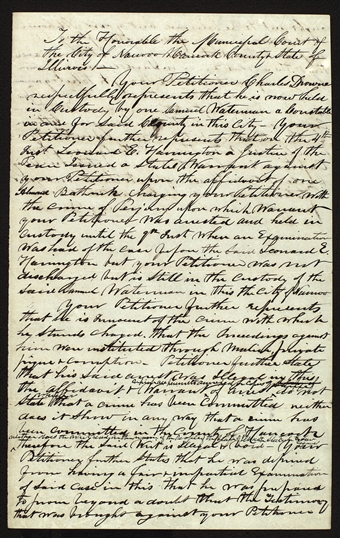 To the Honorable the Municipal Court of
the City of Nauvoo Hancock County & State of
Illinois
Your Petitioner Charles Drown
respectfully represents that he is now held
in Custody by one Samuel Waterman a Constable
in and for Said County in this City Your
Petitioner further represents that on the 7th
Inst Leonard E. Harrington a Justice of the
Peace Issued a States Warrant against
your Petitioner upon the affidavit of one
Charging your Petitioner with
the crime of upon which Warrant
your Petitioner was arrested and held in
custody until the 9th Inst when an Examination
was had of the case before the Said Leonard E.
Harrington but your Petitioner was not
discharged but is still in the custody of the
said Samuel Waterman in this the City of Nauvoo
Your Petitioner further represents
that he is innocent of the crime with which
he stands charged that the proceedings against
him was instituted through Malice, private
pique & corruption. Petitioner further States
that
the affidavit & Warrant do not
State that a crime has been committed neither
does it Show in any way that a crime has
been committed in the County of Hancock
Your
Petitioner further states that he was deprived
from having a fair & impartial Examination
of said case in this that he was prepared
to prove beyond a doubt that the Testimony
that was brought against your Petitioner